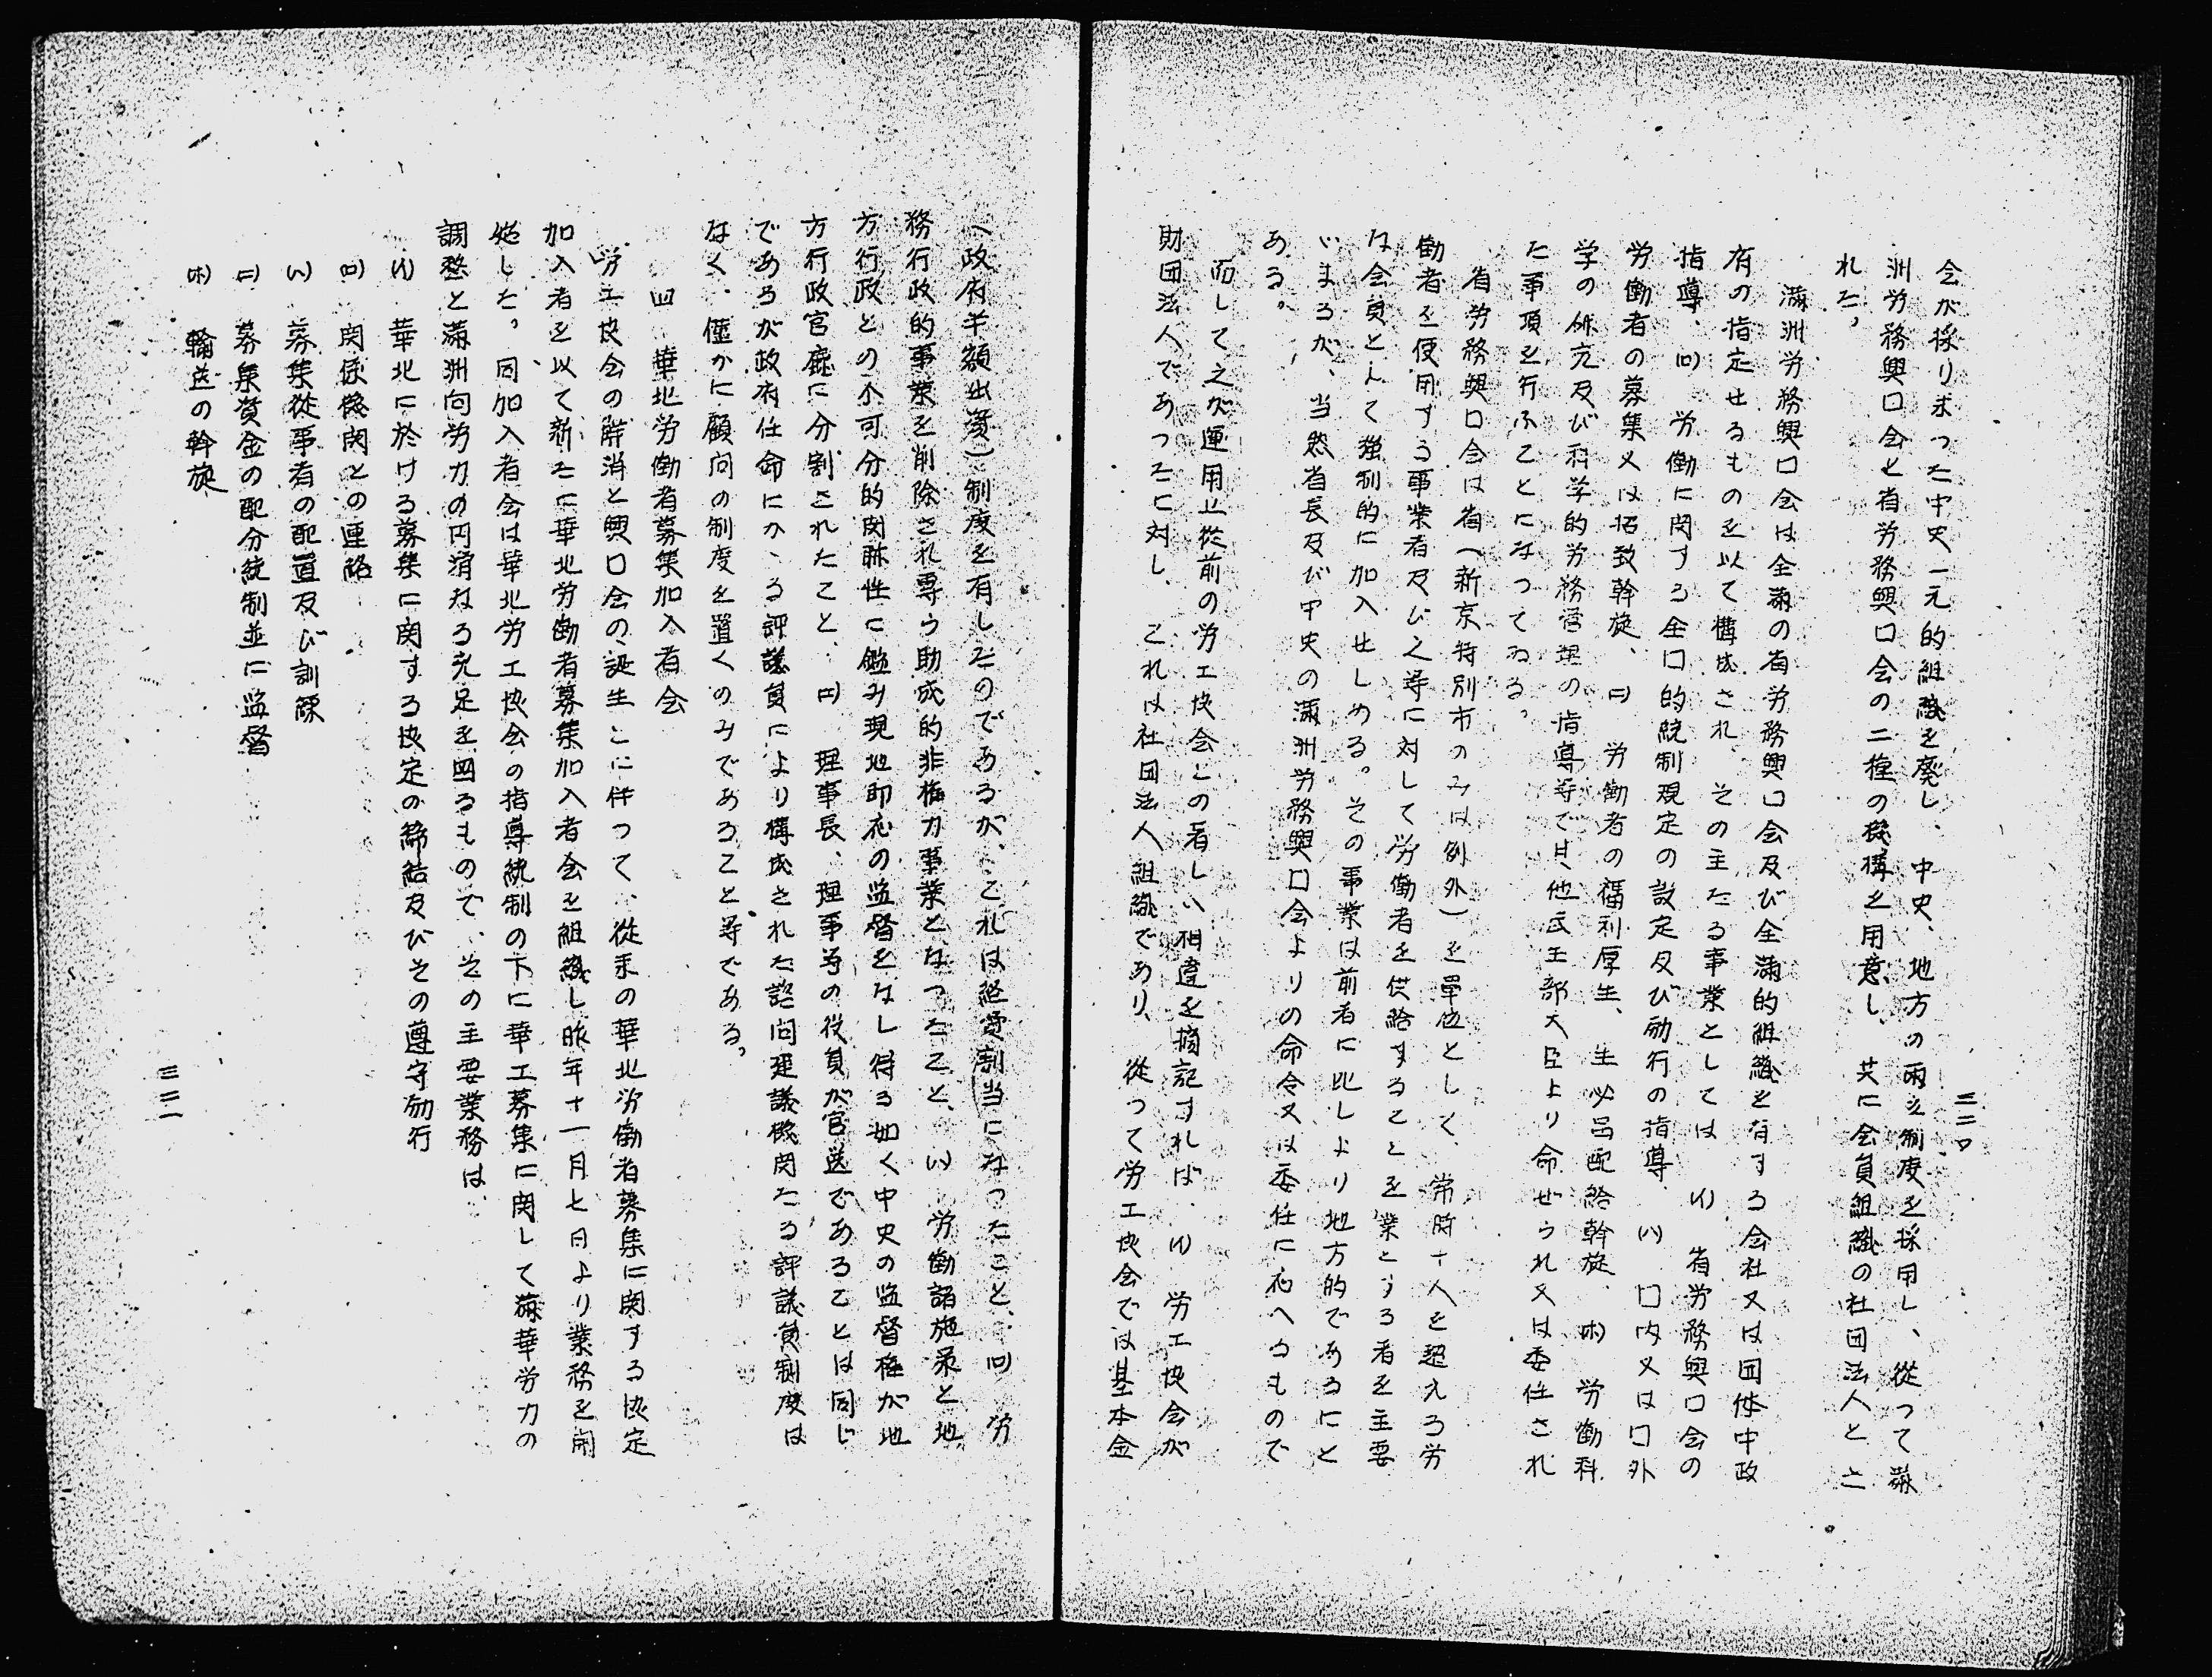 三二〇
会が採り来つた中央一元的組織を廃し、中央、地方の両立制度を採用し、従つて満
洲労務興囗会と省労務興囗会の二種の機構を用意し、共に会員組織の社団法人とさ
れた。
満洲労務興囗会は全満の省労務興囗会及び全満的組織を有する会社又は団体中政
有の指定せるものを以て構成され、その主たる事業としては (イ) 省労務興囗会の
指導、(ロ) 労働に関する全囗的統制規定の設定及び励行の指導 (ハ) 囗内又は囗外
労働者の募集又は招致斡旋、(ニ) 労働者の福利厚生、生必品配給斡旋、(ホ) 労働科
学の研究及び科学的労務管理の指導等で其他民生部大臣より命ぜられ又は委任され
た事項を行ふことになつてゐる。
省労務興囗会は省(新京特別市のみは例外)を単位としく、常時十人を超える労
働者を使用する事業者及び之等に対して労働者を供給することを業とする者を主要
な会員として強制的に加入せしめる。その事業は前者に比しより地方的であるにと
いまるが、当然省長及び中央の満洲労務興囗会よりの命令又は委任に応へるもので
ある。
而して之が運用上従前の労工協会との著しい相違を摘記すれば、(イ) 労工協会が
財団法人であつたに対し、これは社団法人組織であり、従つて労工協会では基本金
(政府半額出資)制度を有したのであるが、これは経費割当になつたこと、(ロ) 労
務行政的事業を削除され専ら助成的非権力事業となつたこと、(ハ) 労働諸施策と地
方行政との不可分的関聯性に鑑み現地即応の監督をなし得る如く中央の監督権が地
方行政官庁に分割されたこと、(ニ) 理事長、理事等の役員が官選であることは同じ
であるが政府任命にかゝる評議員により構成された諮問建議機関たる評議員制度は
なく、僅かに顧問の制度を置くのみであること等である。
四 華北労働者募集加入者会
労工協会の解消と興囗会の誕生とに伴つて、従来の華北労働者募集に関する協定
加入者を以て新たに華北労働者募集加入者会を組織し昨年十一月七日より業務を開
始した。同加入者会は華北労工協会の指導統制の下に華工募集に関して満華労力の
調整と満洲向労力の円滑なる充足を図るもので、その主要業務は、
(イ) 華北に於ける募集に関する協定の締結及びその遵守励行
(ロ) 関係機関との連絡
(ハ) 募集従事者の配置及び訓練
(ニ) 募集資金の配分統制並に監督
(ホ) 輸送の斡旋
三二一